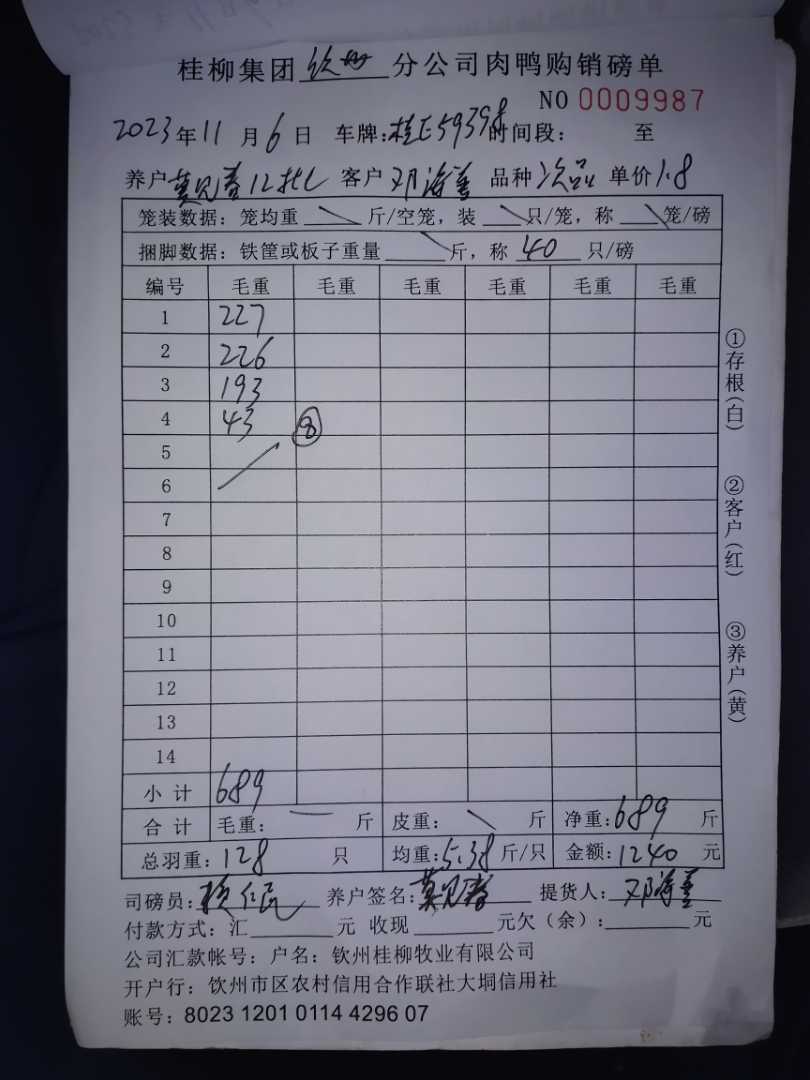 桂柳集团钦州分公司肉鸭购销磅单
NO 0009987
2023年11月6日 车牌:桂E59398时间段: 至
养户莫见春12批 客户邓海善 品种次品 单价1.8
笼装数据: 笼均重 斤/空笼, 装 只/笼, 称 笼/磅
捆脚数据: 铁筐或板子重量 斤, 称 40 只/磅
编号 毛重 毛重 毛重 毛重 毛重 毛重
1 227
2 226
3 193
4 43 ⑧
5
6
7
8
9
10
11
12
13
14
小计 689
合计 毛重: 斤 皮重: 斤 净重:689 斤
总羽重:128 只 均重:5.38 斤/只 金额:1240 元
司磅员: 养户签名:莫见春 提货人:邓海善
付款方式: 汇 元 收现 元欠(余): 元
公司汇款帐号: 户名: 钦州桂柳牧业有限公司
开户行: 钦州市区农村信用合作联社大垌信用社
账号: 8023 1201 0114 4296 07
①存根(白)
②客户(红)
③养户(黄)